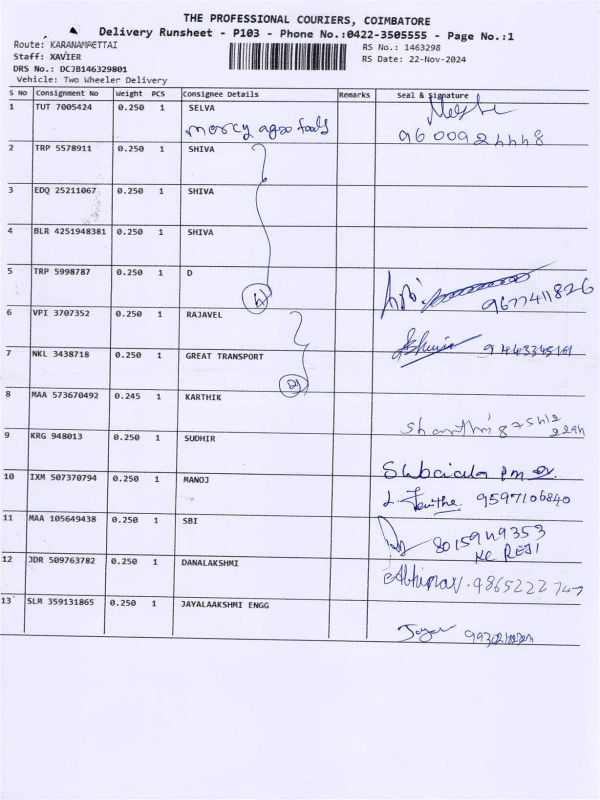 THE PROFESSIONAL COURIERS, COIMBATORE
Delivery Runsheet - P103 - Phone No.:0422-3505555 - Page No.:1
Route: KARANAMPETTAI RS No.: 1463298
Staff: XAVIER RS Date: 22-Nov-2024
DRS No.: DCJB146329801
Vehicle: Two Wheeler Delivery
S No Consignment No Weight PCS Consignee Details Remarks Seal & Signature
1 TUT 7005424 0.250 1 SELVA
mercy agro foods 9600924448
2 TRP 5578911 0.250 1 SHIVA
3 EDQ 25211067 0.250 1 SHIVA
4 BLR 4251948381 0.250 1 SHIVA
5 TRP 5998787 0.250 1 D
9677411826
6 VPI 3707352 0.250 1 RAJAVEL
7 NKL 3438718 0.250 1 GREAT TRANSPORT
8 MAA 573670492 0.245 1 KARTHIK
Shanthi
9 KRG 948013 0.250 1 SUDHIR
10 IXM 507370794 0.250 1 MANOJ
9597106840
11 MAA 105649438 0.250 1 SBI
8015949353
12 JDR 509763782 0.250 1 DANALAKSHMI
Abhinav. 9865222747
13 SLM 359131865 0.250 1 JAYALAAKSHMI ENGG